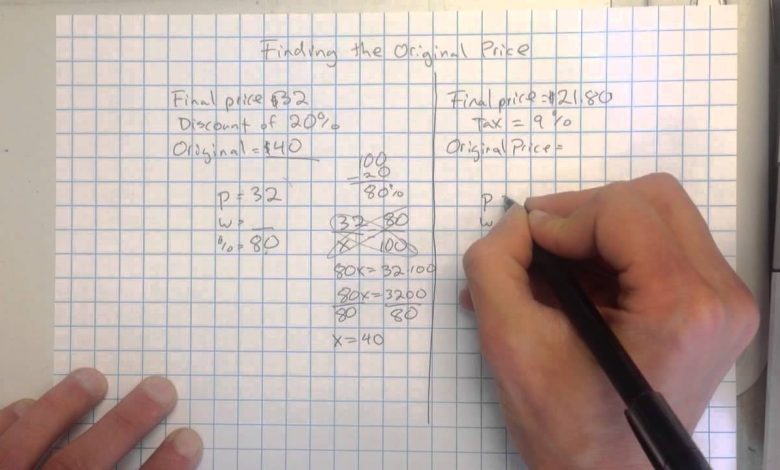 Finding the Original Price
Final price $32
Discount of 20%
Original = $40
100
- 20
80%
P = 32
W = __
% = 80
32 80
x 100
80x = 32·100
80x = 3200
80 80
x = 40
Final price = $21.80
Tax = 9%
Original Price =
P =
W